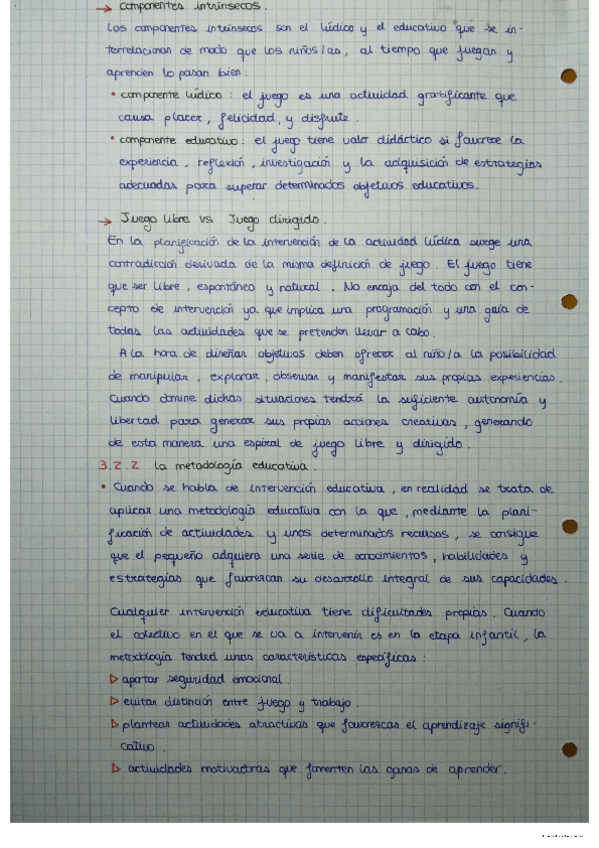 → componentes intrínsecos.
Los componentes intrínsecos son el lúdico y el educativo que se in-
terrelacionan de modo que los niños/as, al tiempo que juegan y
aprenden lo pasan bien:
• componente lúdico: el juego es una actividad gratificante que
causa placer, felicidad, y disfrute.
• componente educativo: el juego tiene valor didáctico si favorece la
experiencia, reflexión, investigación y la adquisición de estrategias
adecuadas para superar determinados objetivos educativos.
→ Juego libre vs Juego dirigido.
En la planificación de la intervención de la actividad lúdica surge una
contradicción derivada de la misma definición de juego. El juego tiene
que ser libre, espontáneo y natural. No encaja del todo con el con-
cepto de intervención ya que implica una programación y una guía de
todas las actividades que se pretenden llevar a cabo.
A la hora de diseñar objetivos deben ofrecer al niño/a la posibilidad
de manipular, explorar, observar y manifestar sus propias experiencias.
Cuando domine dichas situaciones tendrá la suficiente autonomía y
libertad para generar sus propias acciones creativas, generando
de esta manera una espiral de juego libre y dirigido.
3.2.2 La metodología educativa.
• Cuando se habla de intervención educativa, en realidad se trata de
aplicar una metodología educativa con la que, mediante la plani-
ficación de actividades y unos determinados recursos, se consigue
que el pequeño adquiera una serie de conocimientos, habilidades y
estrategias que favorezcan su desarrollo integral de sus capacidades.
Cualquier intervención educativa tiene dificultades propias. Cuando
el colectivo en el que se va a intervenir es en la etapa infantil, la
metodología tendrá unas características específicas:
▷ aportar seguridad emocional.
▷ evitar distinción entre juego y trabajo.
▷ plantear actividades atractivas que favorezcas el aprendizaje signifi-
cativo.
▷ actividades motivadoras que fomenten las ganas de aprender.